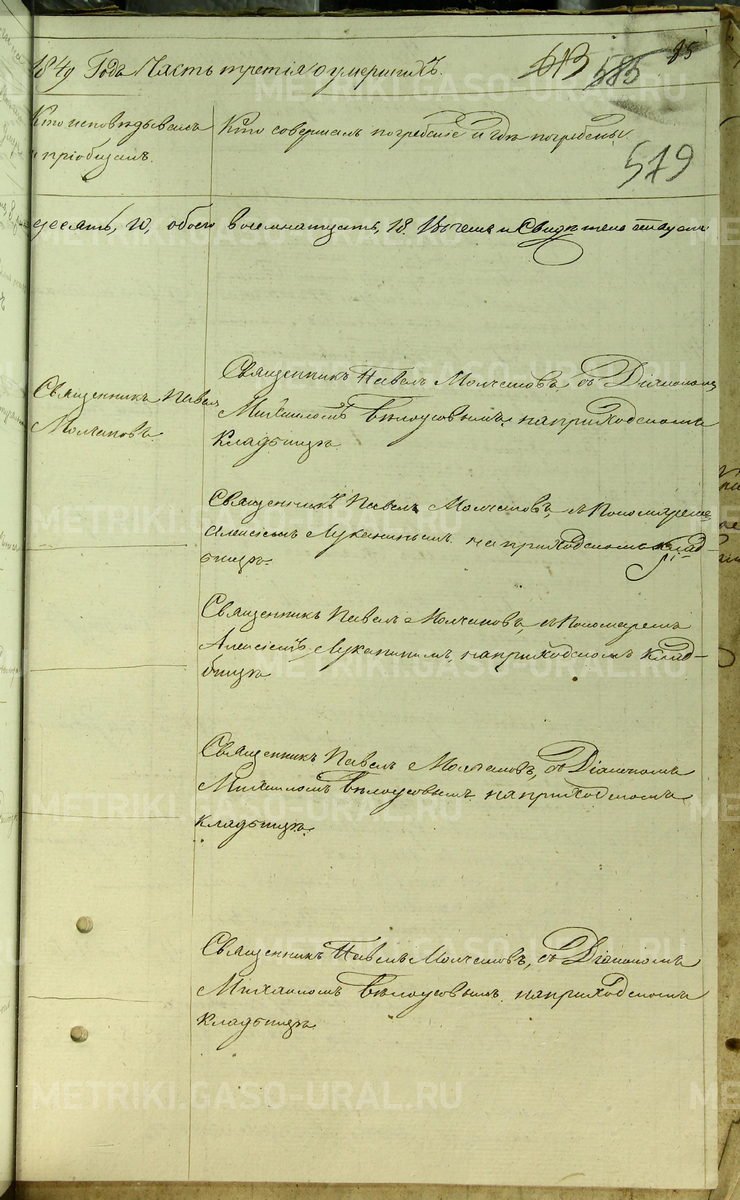 1849 Года Часть третія о умершихъ.
613 585 85
Кто исповѣдывалъ
и пріобщалъ.
Кто совершалъ погребеніе и гдѣ погребены.
579
десять, 10, обоего
восемнатцать, 18.
Священникъ Павелъ
Молчановъ
Священникъ Павелъ Молчановъ съ Діакономъ
Михаиломъ Бѣлоусовымъ на приходскомъ
кладбищѣ.
Священникъ Павелъ Молчановъ, съ Пономаремъ
Алексѣемъ Луканинымъ на приходскомъ клад-
бищѣ.
Священникъ Павелъ Молчановъ, съ Пономаремъ
Алексѣемъ Луканинымъ, на приходскомъ клад-
бищѣ
Священникъ Павелъ Молчановъ, съ Діакономъ
Михаиломъ Бѣлоусовымъ на приходскомъ
кладбищѣ.
Священникъ Павелъ Молчановъ, съ Діакономъ
Михаиломъ Бѣлоусовымъ на приходскомъ
кладбищѣ
METRIKI.GASO-URAL.RU